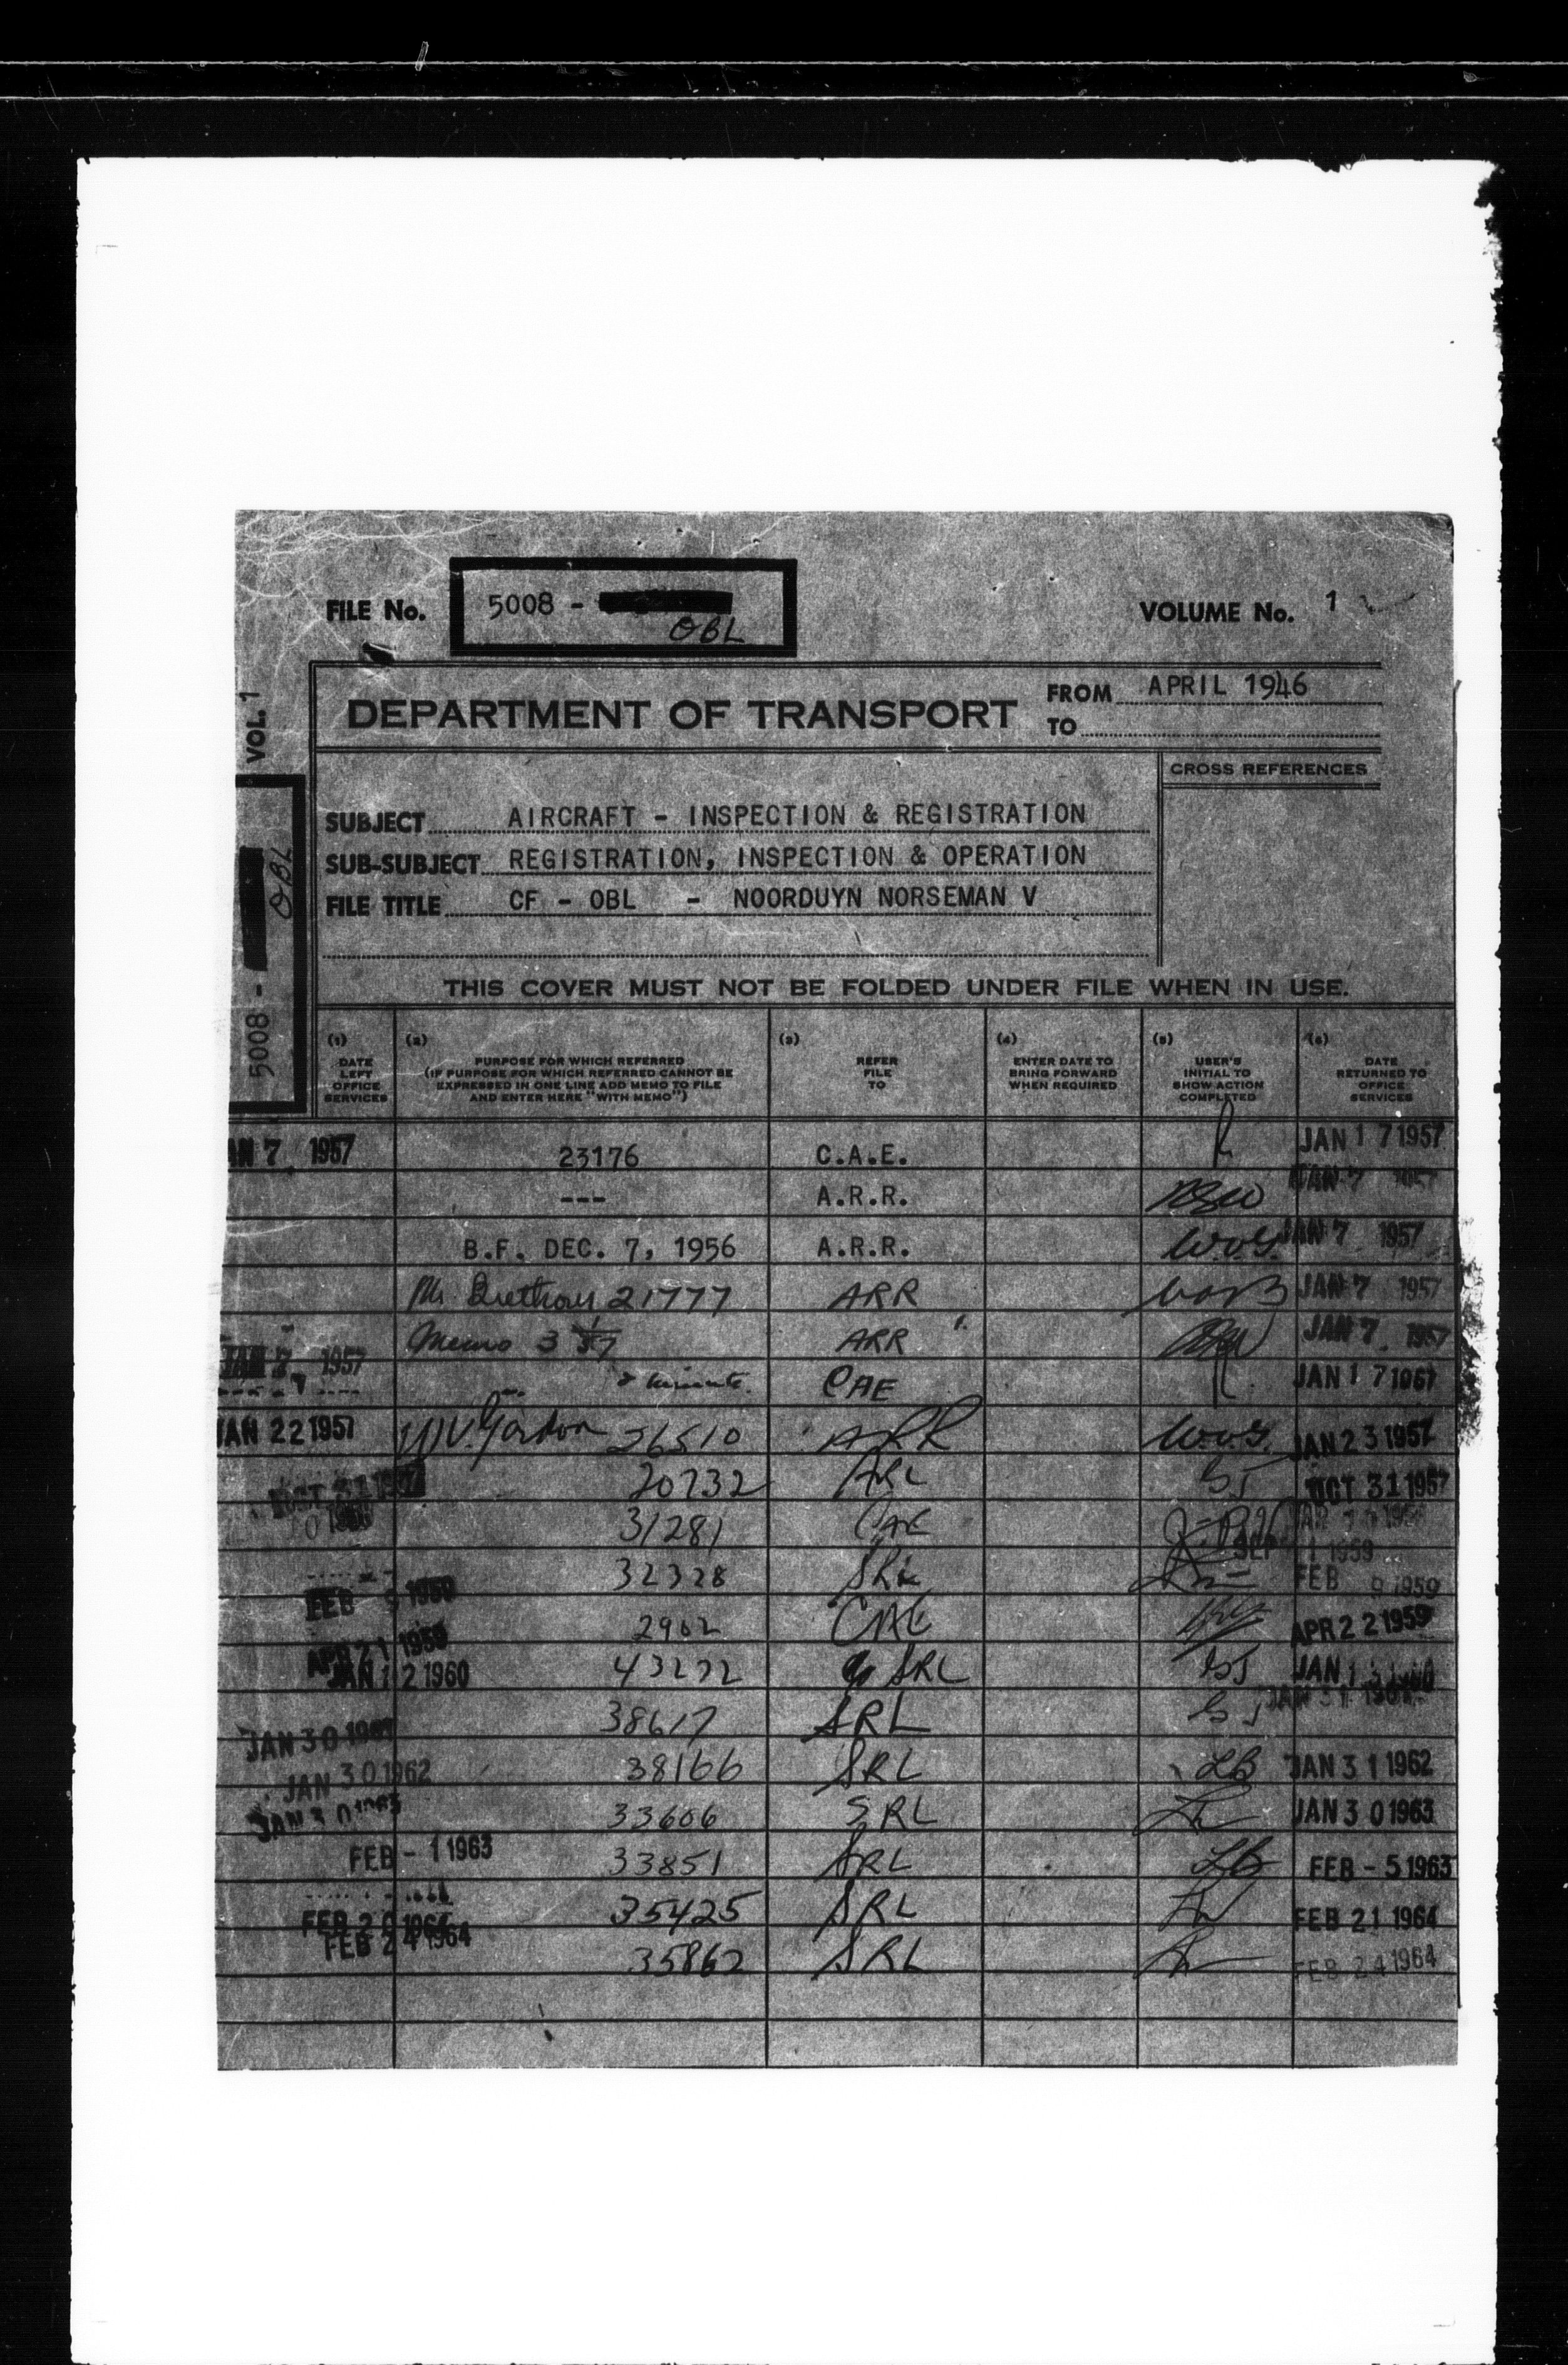 FILE No. 5008 - OBL VOLUME No. 1
VOL. 1
5008 - OBL
DEPARTMENT OF TRANSPORT
FROM APRIL 1946
TO
CROSS REFERENCES
SUBJECT AIRCRAFT - INSPECTION & REGISTRATION
SUB-SUBJECT REGISTRATION, INSPECTION & OPERATION
FILE TITLE CF - OBL - NOORDUYN NORSEMAN V
THIS COVER MUST NOT BE FOLDED UNDER FILE WHEN IN USE.
(1) DATE LEFT OFFICE SERVICES
(2) PURPOSE FOR WHICH REFERRED (IF PURPOSE FOR WHICH REFERRED CANNOT BE EXPRESSED IN ONE LINE ADD MEMO TO FILE AND ENTER HERE "WITH MEMO")
(3) REFER FILE TO
(4) ENTER DATE TO BRING FORWARD WHEN REQUIRED
(5) USER'S INITIAL TO SHOW ACTION COMPLETED
(6) DATE RETURNED TO OFFICE SERVICES
AN 7, 1957 23176 C.A.E. JAN 17 1957
--- A.R.R. JAN 7 1957
B.F. DEC. 7, 1956 A.R.R. W.O.G. JAN 7 1957
21777 ARR JAN 7 1957
JAN 7 1957 Memo 3 1/57 ARR JAN 7. 1957
minute. CAE JAN 17 1957
JAN 22 1957 W.V. Gordon 26510 ARR W.O.G. JAN 23 1957
OCT 31 1957 20732 ARL GJ OCT 31 1957
31281 CAE
SEP 11 1959
FEB 9 1959 32328 SRL FEB 9 1959
APR 21 1959 2902 CAE APR 22 1959
JAN 12 1960 43232 SRL GJ JAN 13 1960
JAN 30 1961 38617 SRL GJ JAN 31 1961
JAN 30 1962 38166 SRL LB JAN 31 1962
JAN 30 1963 33606 SRL JAN 30 1963
FEB - 1 1963 33851 SRL LB FEB - 5 1963
FEB 20 1964 35425 SRL FEB 21 1964
FEB 24 1964 35862 SRL FEB 24 1964